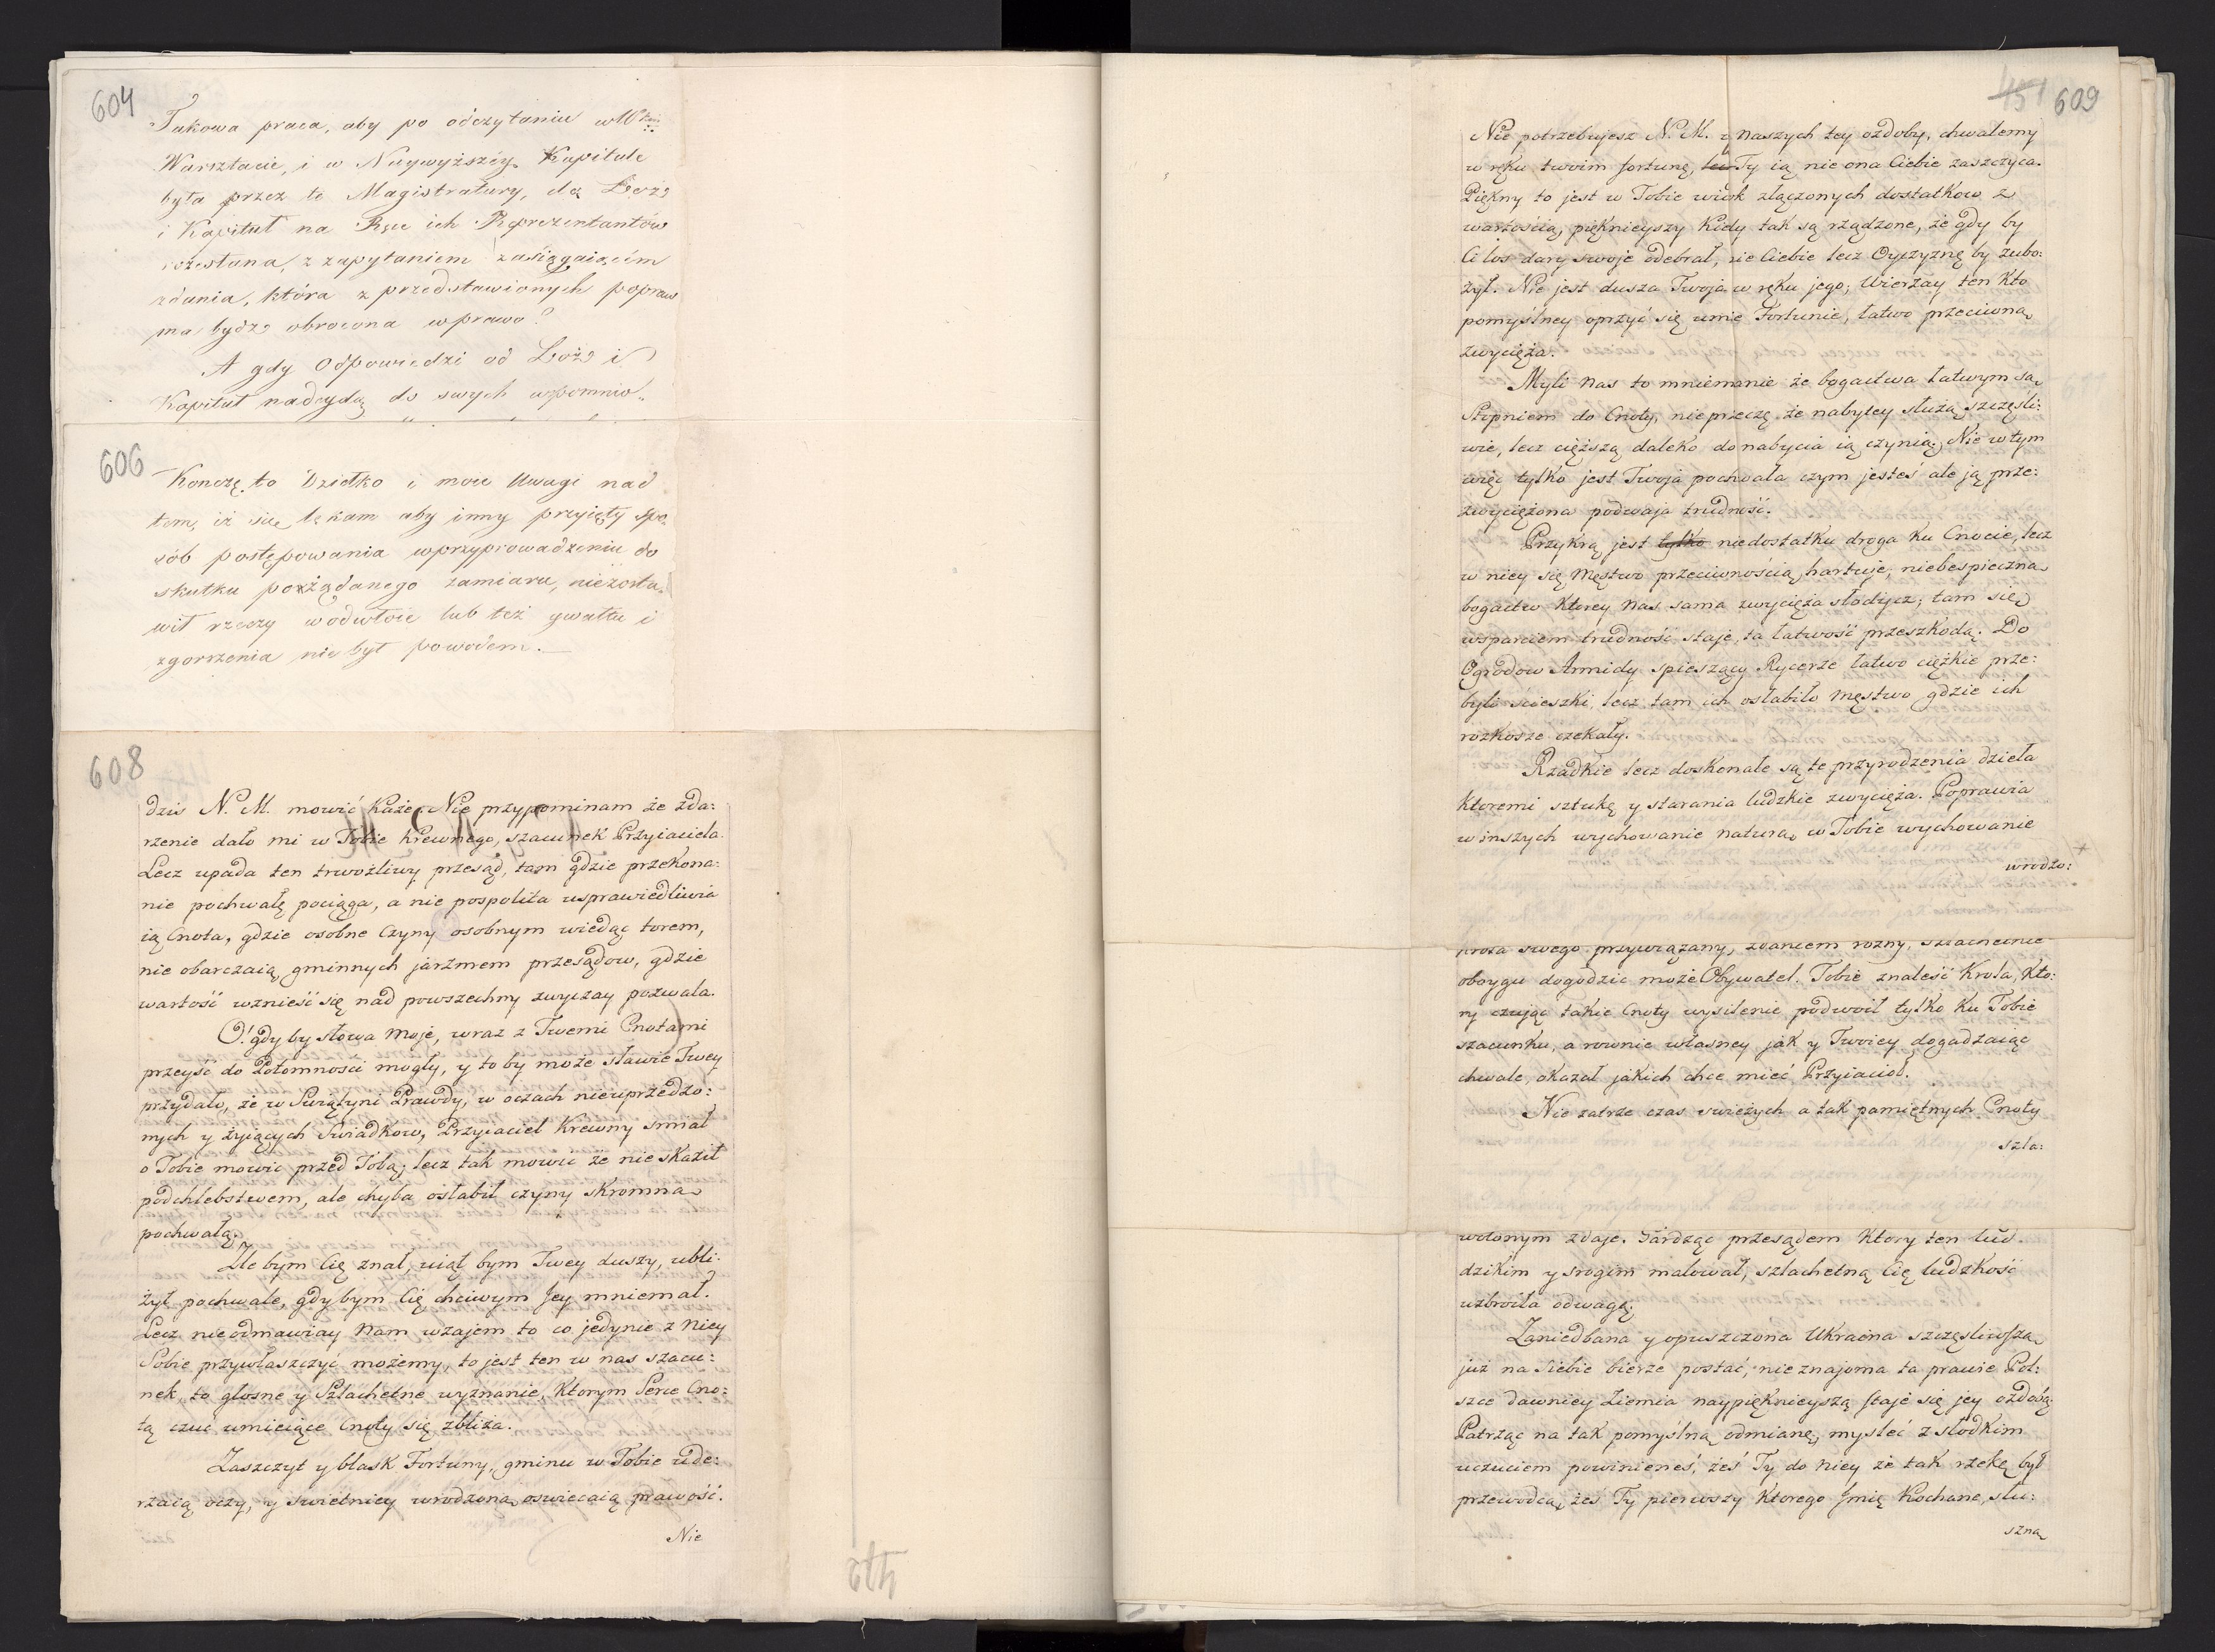 604
Takowa praca, aby po odczytaniu w W
Warsztacie, i w Naywyższéy Kapitule
była przez te Magistratury, do Lożé
i Kapituł na Ręce ich Reprezentantów
rozesłana, z zapytaniem zasiągaiącém
zdania, która z przedstawionych popraw
ma bydz obrocona w prawo?
A gdy Odpowiedzi od Loże i
Kapituł nadeydą do swych wspomnio„
606
Konczę to Dziełko i moie Uwagi nad
tem, iż się lękam aby inny przyięty spo„
sób postępowania w przyprowadzeniu do
skutku pożądanego zamiaru, niezosta„
wił rzeczy w odwłoie lub też gwałtu i
zgorszenia nie był powodem. —
608
dzis N. M. mowić każe. Nie przypominam że zda:
rzenie dało mi w Tobie krewnego, szacunek Przyiaciela.
Lecz upada ten trwożliwy przesąd, tam gdzie przekona:
nie pochwałę pociąga, a nie pospolita usprawiedliwia
ią Cnota, gdzie osobne Czyny osobnym wiedząc torem,
nie obarczaią gminnych jarzmem przesądow, gdzie
wartość wznieść się nad powszechny zwyczay pozwala.
O! gdy by słowa moje, wraz z Twemi Cnotami
przeyść do Potomności mogły, y to by może sławie Twey
przydało, że w Swiątyni Prawdy, w oczach nieuprzedzo:
nych y żyiących Swiadkow, Przyiaciel Krewny smiał
o Tobie mowić przed Tobą; lecz tak mowić że nie skaził
podchlebstwem, ale chyba osłabił czyny skromną
pochwałą.
Zle bym Cię znał, uiął bym Twey duszy, ubli:
żył pochwale, gdy bym Cię chciwym Jey mniemał.
Lecz nie odmawiay Nam wzajem to co jedynie z Niey
Sobie przywłaszczyć możemy, to jest ten w nas szacu:
nek, to głosne y Szlachetne wyznanie, Ktorym Serce Cno:
tą czuć umieiące Cnoty się zbliża.
Zaszczyt y blask Fortuny, gminu w Tobie ude:
rzaią oczy, y swietniey wrodzoną oswiecaią prawość.
Nie
472
451 609
Nie potrzebujesz N. M. z Naszych tey ozdoby, chwalemy
w ręku twoim fortunę, lecz Ty ią nie ona Ciebie zaszczyca.
Piękny to jest w Tobie widok złączonych dostatkow z
wartością, pięknieyszy kiedy tak są rządzone, że gdy by
Ci los dary swoje odebrał, nie Ciebie lecz Oyczyznę by zubo:
żył. Nie jest dusza Twoja w ręku jego; Wierzay ten kto
pomyślney oprzyć się umie Fortunie, łatwo przeciwną
zwycięża.
Myli nas to mniemanie że bogactwa łatwym są
Stopniem do Cnoty, nie przeczę że nabytey służą szczęśli:
wie, lecz cięższą daleko do nabycia ią czynią. Nie w tym
więc tylko jest Twoja pochwała czym jesteś ale ją prze:
zwyciężona podwaja trudność.
Przykrą jest tylko niedostatku droga ku Cnocie, lecz
w niey się Męstwo przeciwnością hartuje, niebespieczna
bogactw Ktorey nas sama zwycięża słodycz; tam się
wsparciem trudność staje, ta łatwość przeszkodą. Do
Ogrodow Armidy spieszący Rycerze łatwo ciężkie prze:
byli scieszki, lecz tam ich osłabiło męstwo, gdzie ich
rozkosze czekały.
Rzadkie lecz doskonałe są te przyrodzenia dzieła
Ktoremi sztukę y starania ludzkie zwycięża. Poprawia
w inszych wychowanie naturą, w Tobie wychowanie
wrodzo:
Krola swego przywiązany, zdaniem rozny, szlachetnie
oboygu dogodzić może Obywatel. Tobie znaleść Krola, Kto:
ry czując takie Cnoty wysilenie, podwoił tylko ku Tobie
szacunku, a rownie własney jak y Twoiey dogadzaiąc
chwale, okazał jakich chce mieć Przyiacioł.
Nie zatrze czas swieżych a tak pamiętnych Cnoty
szla:
wolonym zdaje. Gardząc przesądem Ktory ten lud
dzikim y srogim malował, szlachetną Cię ludzkość
uzbroiła odwagą.
Zaniedbana y opuszczona Ukraina szczęśliwszą
już na siebie bierze postać, nie znajoma ta prawie Pol:
szce dawniey Ziemia naypięknieyszą staje się jey ozdobą.
Patrząc na tak pomyślną odmianę, mysleć z słodkim
uczuciem powinieneś, żeś Ty do niey że tak rzekę był
przewodcą, żeś Ty pierwszy Ktorego Jmię Kochane, słu:
szną